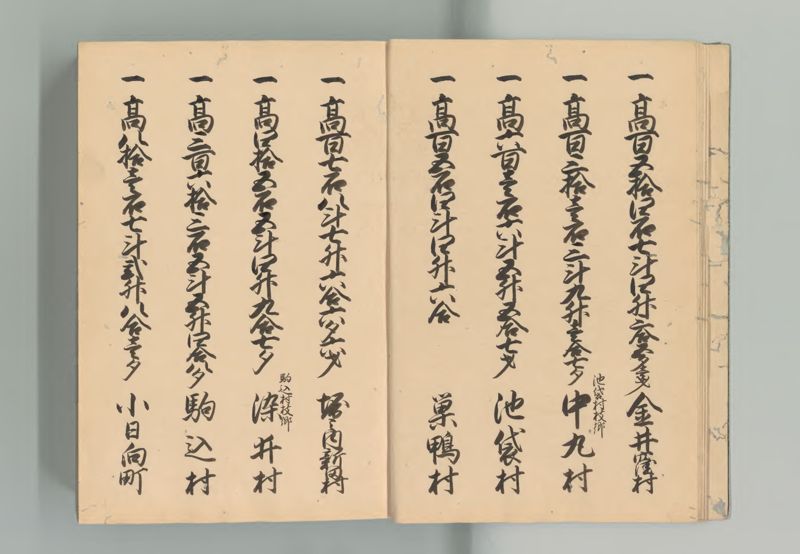 一 高百五拾四石七斗四升 金井窪村
一 高百二拾壱石二斗九升壱合七夕 池袋村枝郷 中丸村
一 高六百壱石六斗五升五合七才 池袋村
一 高百五石四斗四升六合 巣鴨村
一 高百七石八斗七升六合六夕六才 堀之内新田村
一 高四拾五石五斗四升九合七夕 駒込村枝郷 染井村
一 高二百六拾二石五斗五升四合八夕 駒込村
一 高八拾壱石七斗弐升八合壱夕 小日向町